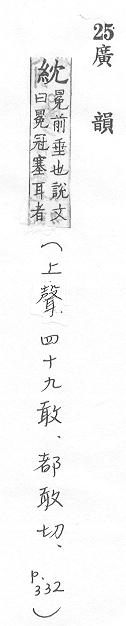 25廣韻
紞冕前垂也說文
曰冕冠塞耳者
(上聲．四十九敢、都敢切、p.332)